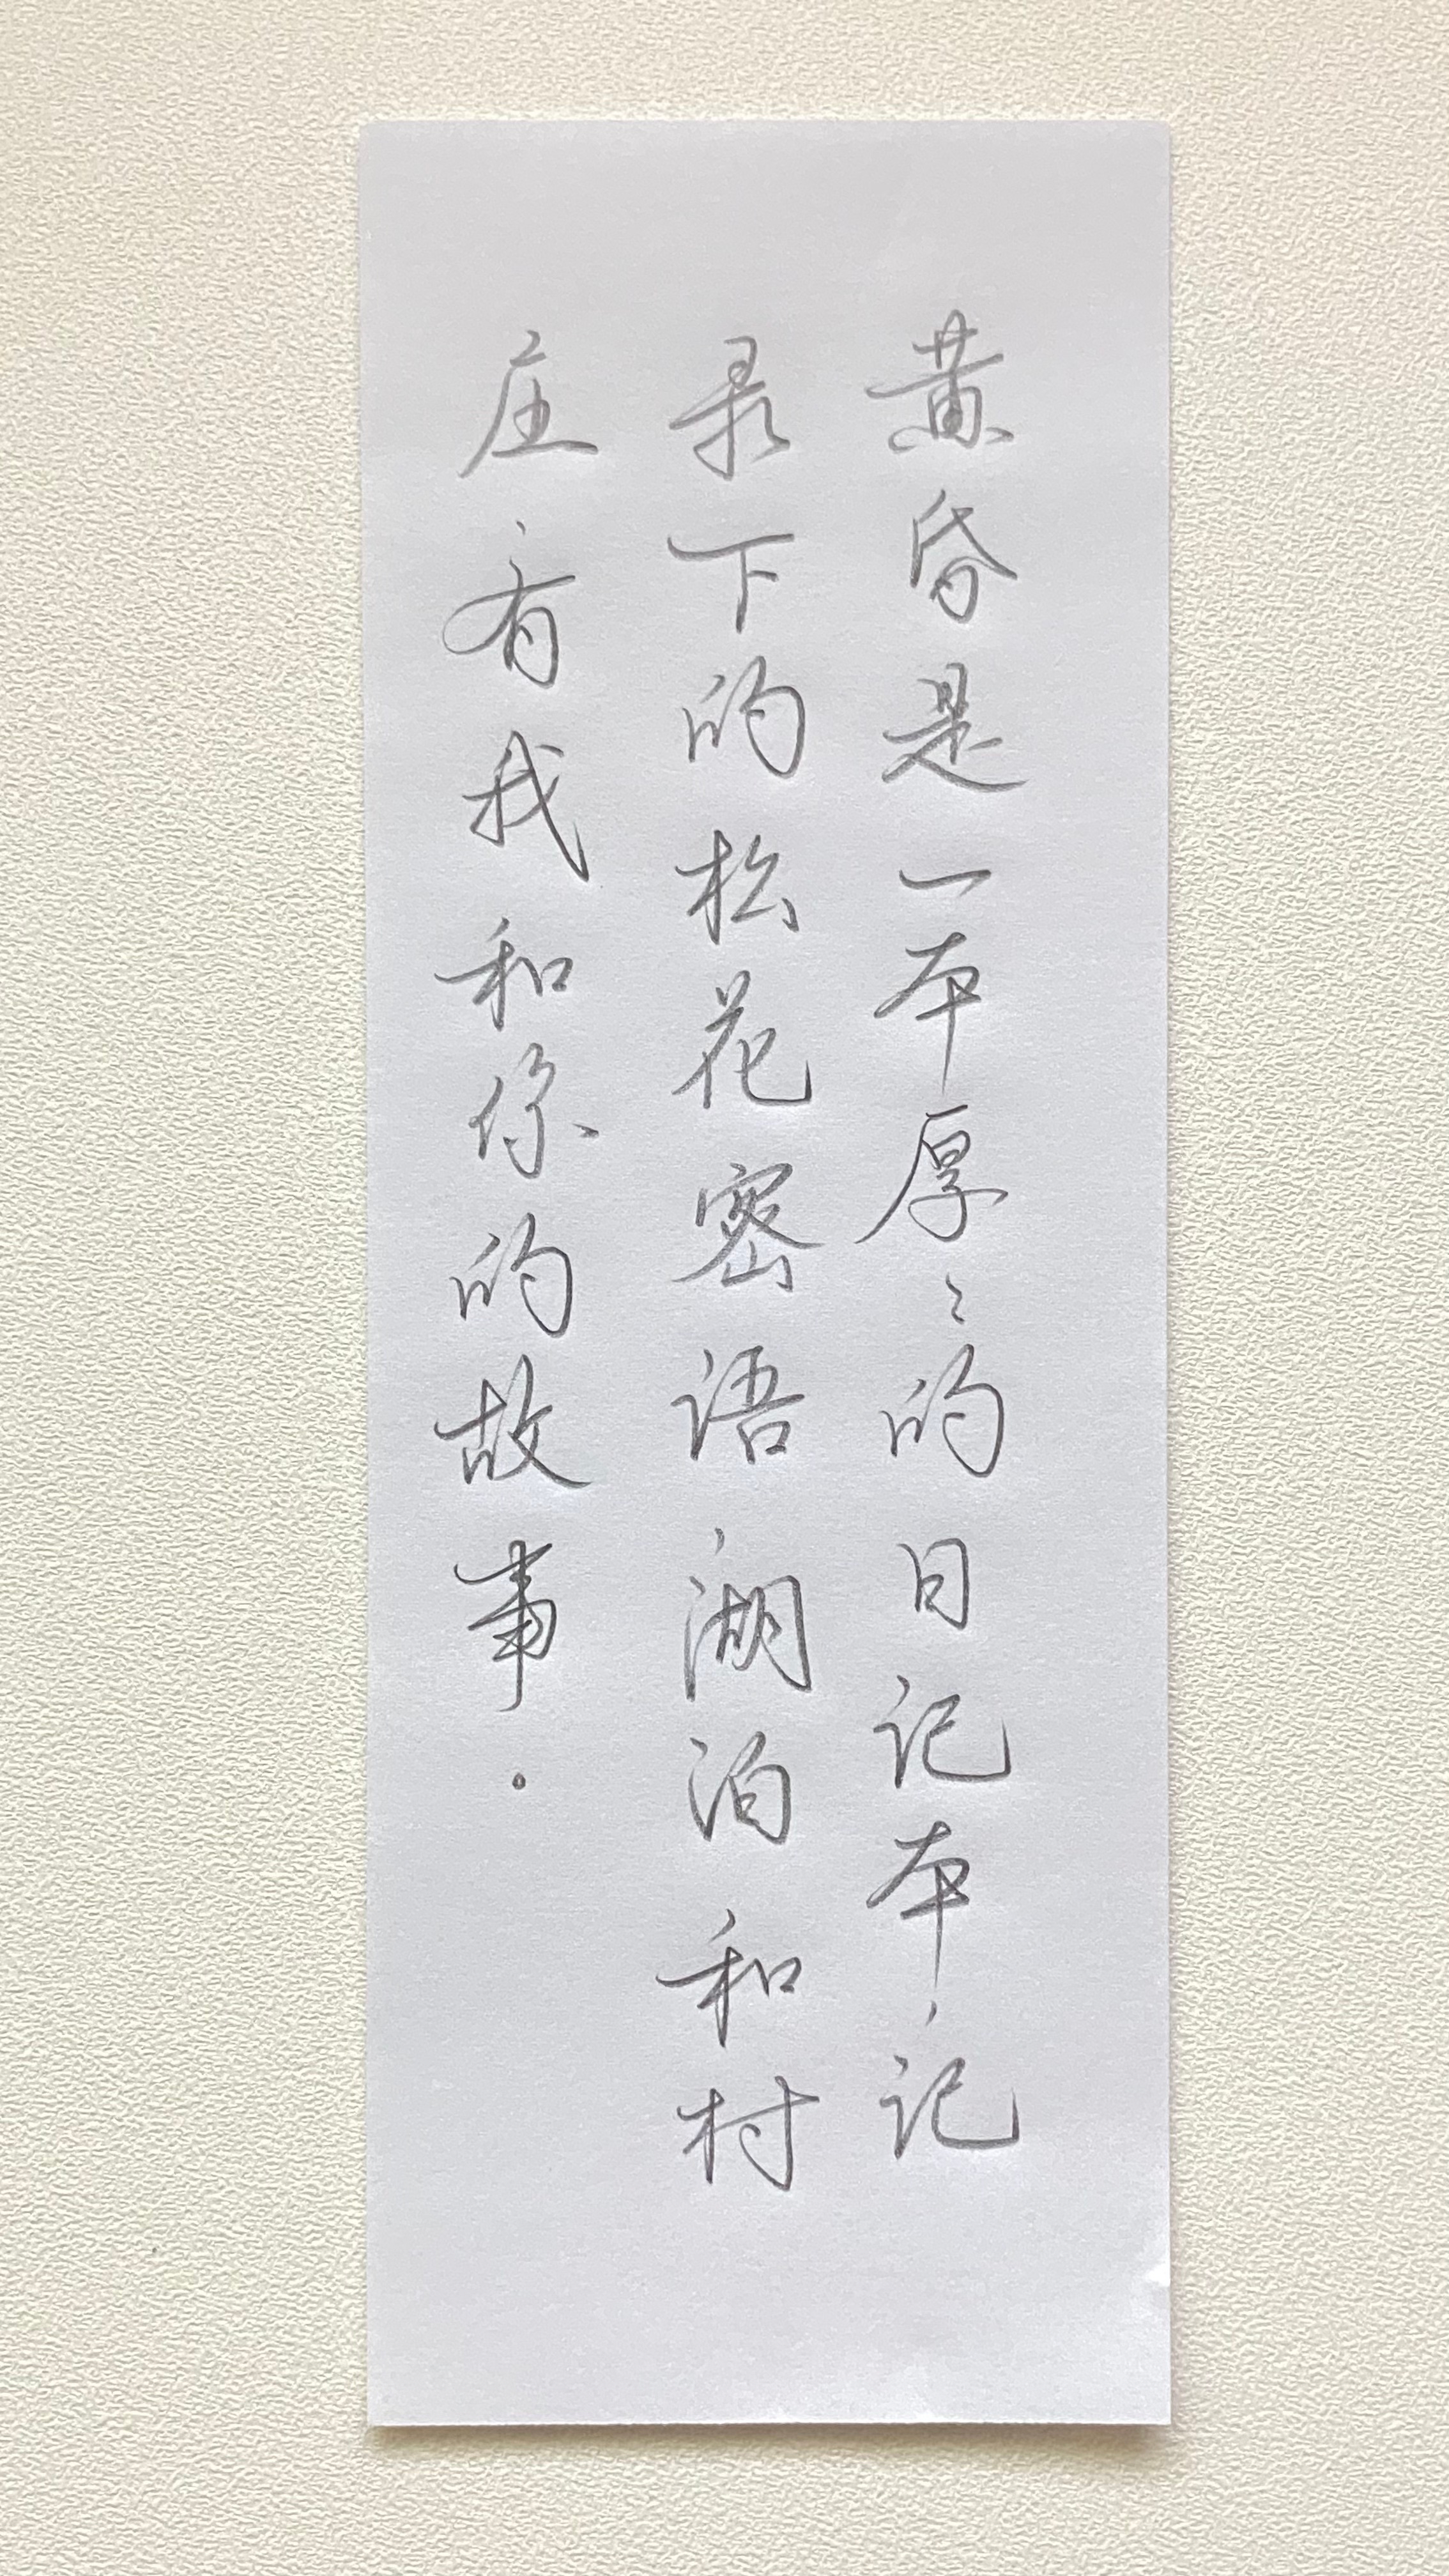 黄昏是一本厚々的日记本，记
录下的松花密语，湖泊和村
庄，有我和你的故事。